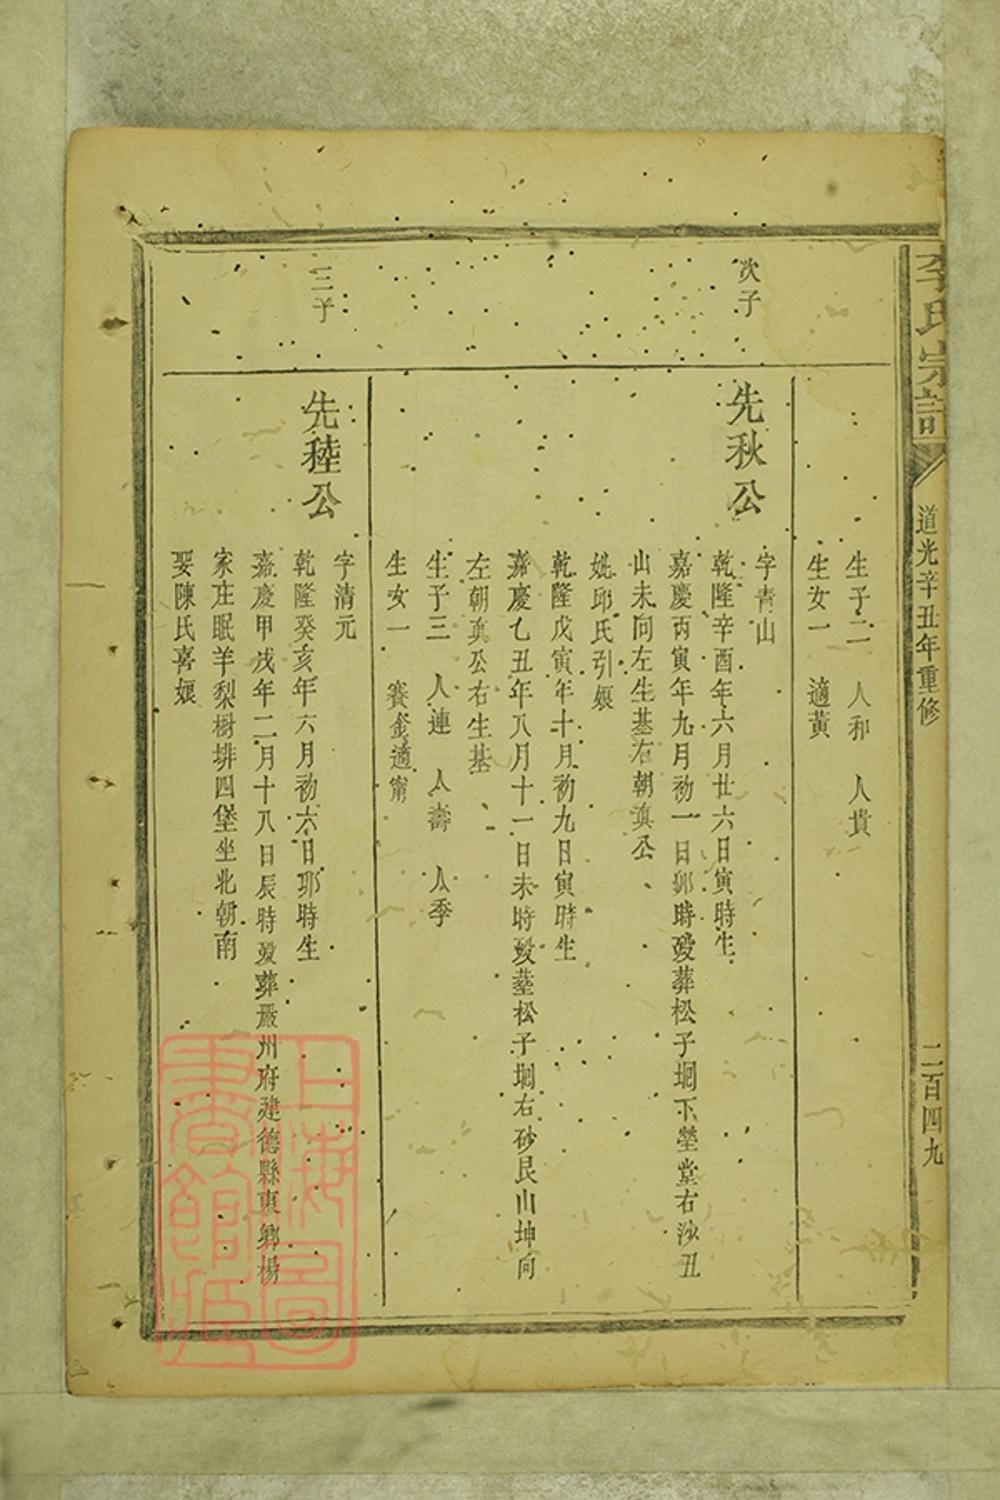 李氏宗譜
道光辛丑年重修
二百四九
生子二 人和 人貴
生女一 適黃
次子
先秋公
字青山
乾隆辛酉年六月廿六日寅時生
嘉慶丙寅年九月初一日卯時歿葬松子垇下塋堂右沙丑
山未向左生基右朝真公
姚邱氏引娘
乾隆戊寅年十月初九日寅時生
嘉慶乙丑年八月十一日未時歿塟松子垇右砂艮山坤向
左朝真公右生基
生子三 人連 人壽 人季
生女一 賽金適甯
三子
先稑公
字清元
乾隆癸亥年六月初六日耶時生
嘉慶甲戌年二月十八日辰時歿葬嚴州府建德縣東鄉楊
家庄眠羊梨樹排四堡坐北朝南
娶陳氏喜娘
上海圖書館藏